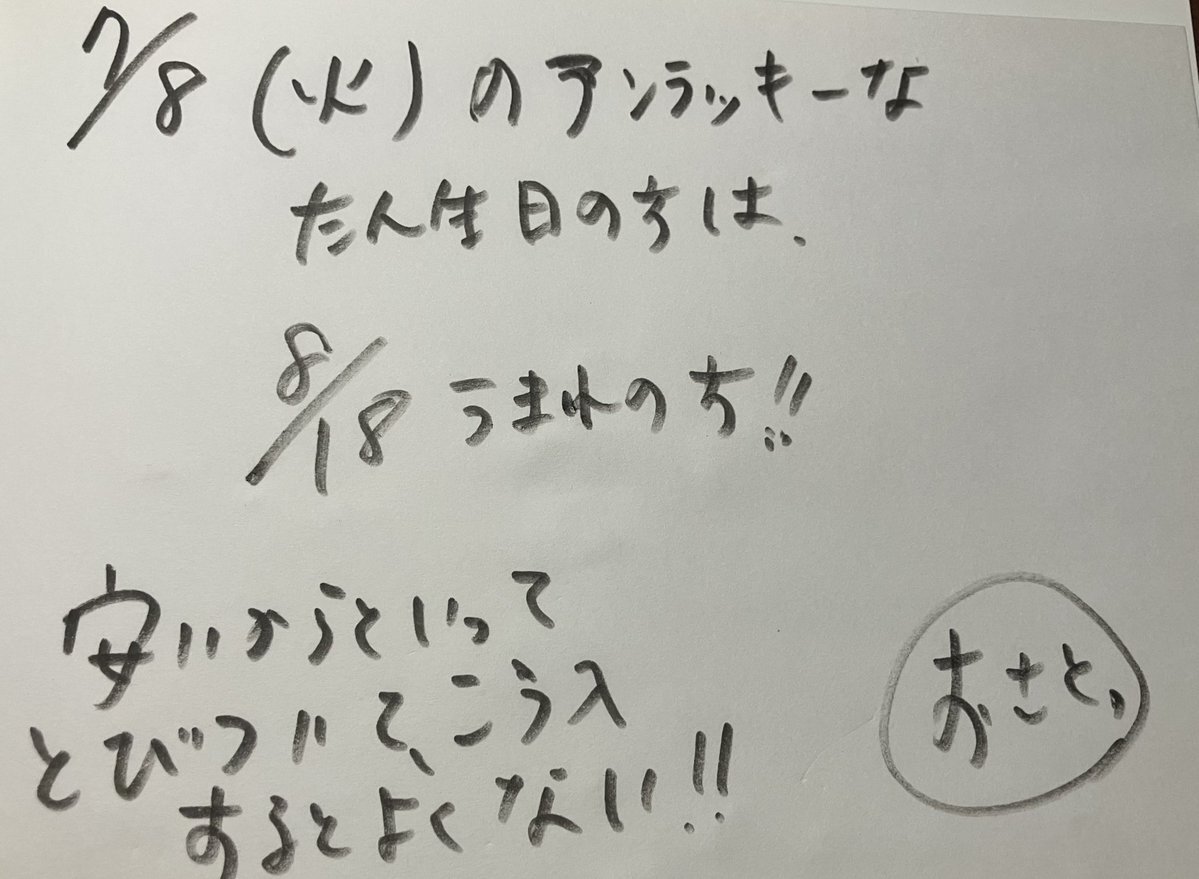 7/8(火)のアンラッキーな
たん生日の方は、
8/18うまれの方!!
安いからといって
とびついて、こう入
するとよくない!!
おさと、